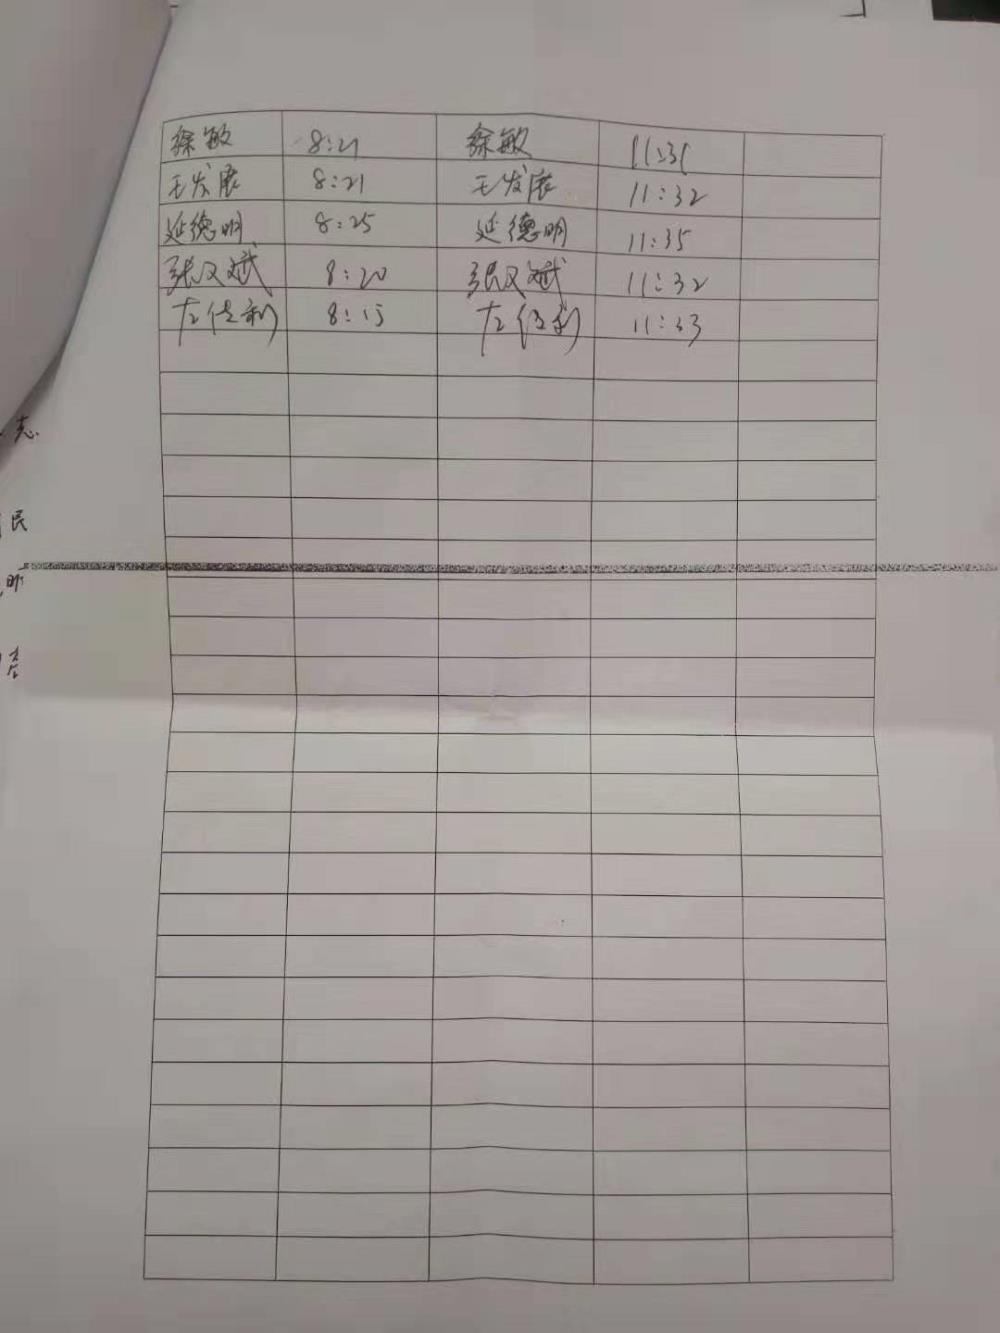 徐敏 8:21 徐敏 11:31
王发展 8:21 王发展 11:32
延德明 8:25 延德明 11:35
张汉斌 8:20 张汉斌 11:32
左佳利 8:15 左佳利 11:33
志
民
明